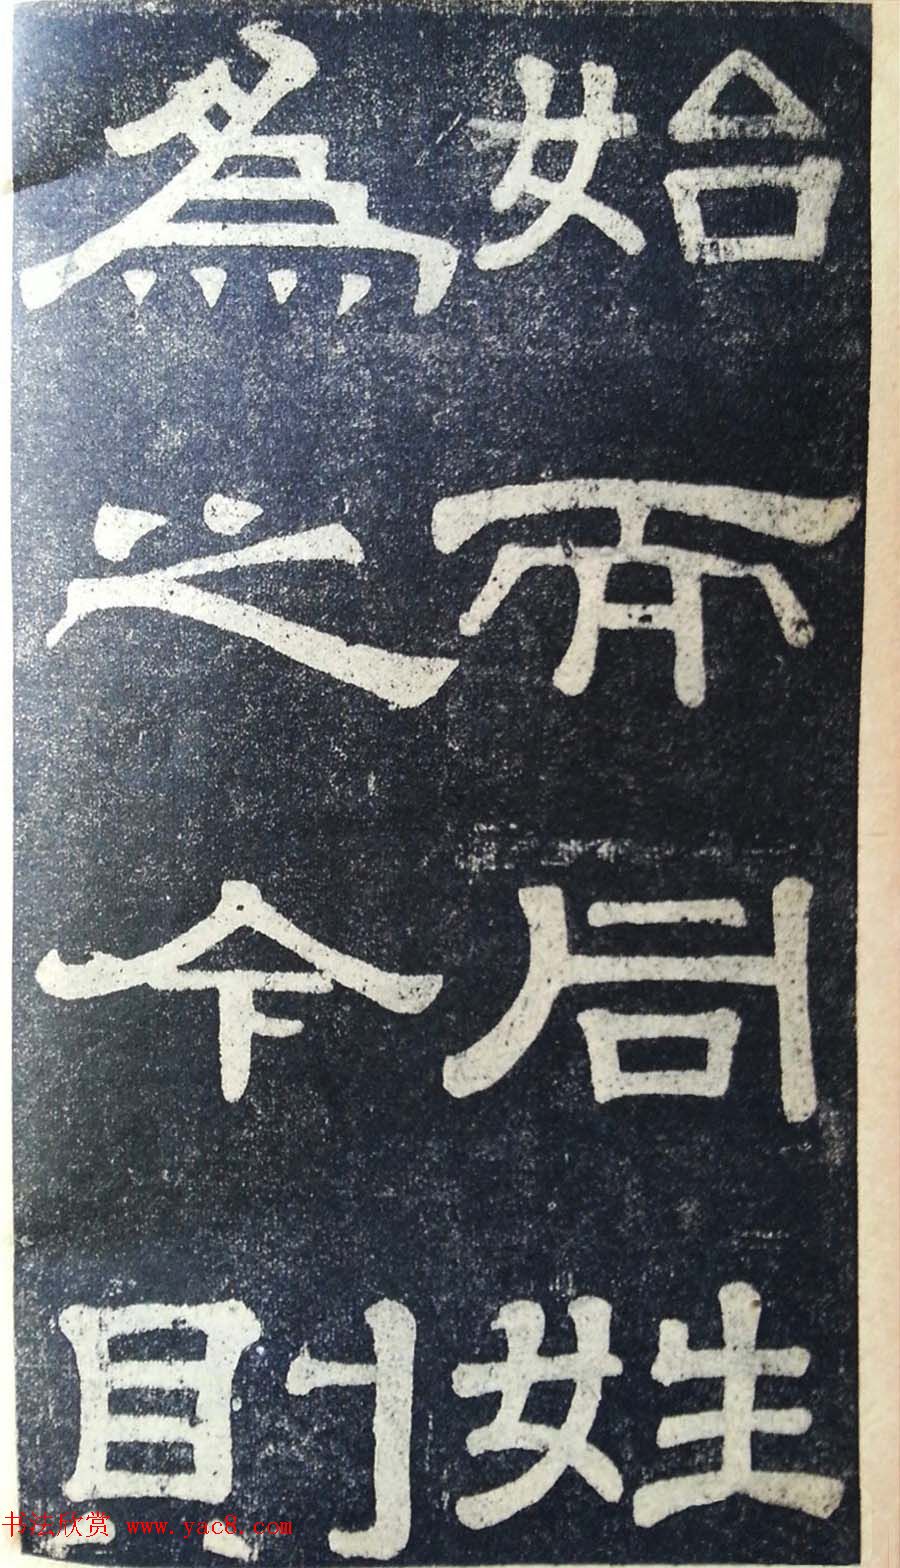 始而同姓
為之今則
书法欣赏 www.yac8.com